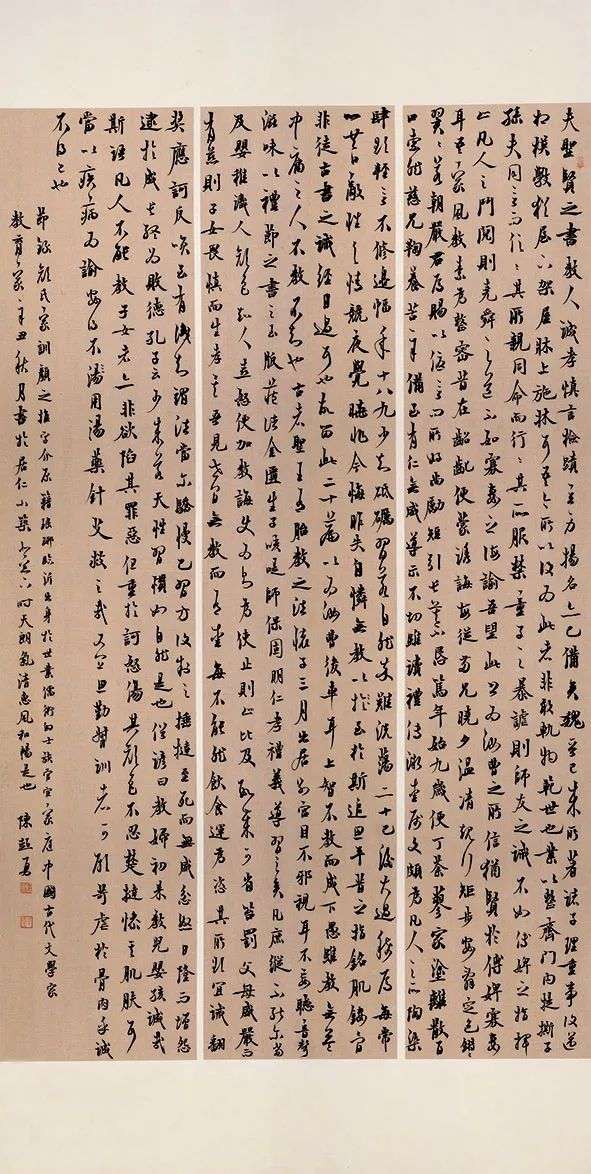 夫聖賢之書教人誠孝慎言檢蹟立身揚名亦已備矣魏晉已來所著諸子理重事複遞
相模斅猶屋下架屋牀上施牀耳吾今所以復為此者非敢軌物範世也業以整齊門內提撕子
孫夫同言而信信其所親同命而行行其所服禁童子之暴謔則師友之誡不如傅婢之指揮
止凡人之鬥鬩則堯舜之道不如寡妻之誨諭吾望此書為汝曹之所信猶賢於傅婢寡妻
耳吾家風教素為整密昔在齠齔便蒙誘誨每從兩兄曉夕溫凊規行矩步安辭定色鏘鏘
翼翼若朝嚴君焉賜以優言問所好尚勵短引長莫不懇篤年始九歲便丁荼蓼家塗離散百
口索然慈兄鞠養苦辛備至有仁無威導示不切雖讀禮傳微愛屬文頗為凡人之所陶染
肆欲輕言不修邊幅年十八九少知砥礪習若自然卒難洗蕩二十已後大過稀焉每常
心共口敵性與情競夜覺曉非今悔昨失自憐無教以至於斯追思平昔之指銘肌鏤骨
非徒古書之誡經目過耳也故留此二十篇以為汝曹後車耳上智不教而成下愚雖教無益
中庸之人不教不知也古者聖王有胎教之法懷子三月出居別宮目不邪視耳不妄聽音聲
滋味以禮節之書之玉版藏諸金匱生子咳㖷師保固明仁孝禮義導習之矣凡庶縱不能爾當
及嬰稚識人顏色知人喜怒便加教誨使為則為使止則止比及數歲可省笞罰父母威嚴而
有慈則子女畏慎而生孝矣吾見世間無教而有愛每不能然飲食運為恣其所欲宜誡翻
獎應訶反笑至有識知謂法當爾驕慢已習方復制之捶撻至死而無威忿怒日隆而增怨
逮於成長終為敗德孔子云少成若天性習慣如自然是也俗諺曰教婦初來教兒嬰孩誠哉
斯語凡人不能教子女者亦非欲陷其罪惡但重於訶怒傷其顏色不忍楚撻慘其肌膚耳
當以疾病為諭安得不用湯藥針艾救之哉又宜思勤督訓者可願苛虐於骨肉乎誠
不得已也
節錄顏氏家訓顏之推字介原籍琅琊臨沂出身於世業儒術的士族官宦之家庭中國古代文學家
教育家辛丑秋月書於居仁小築時天朗氣清惠風和暢是也 陳超